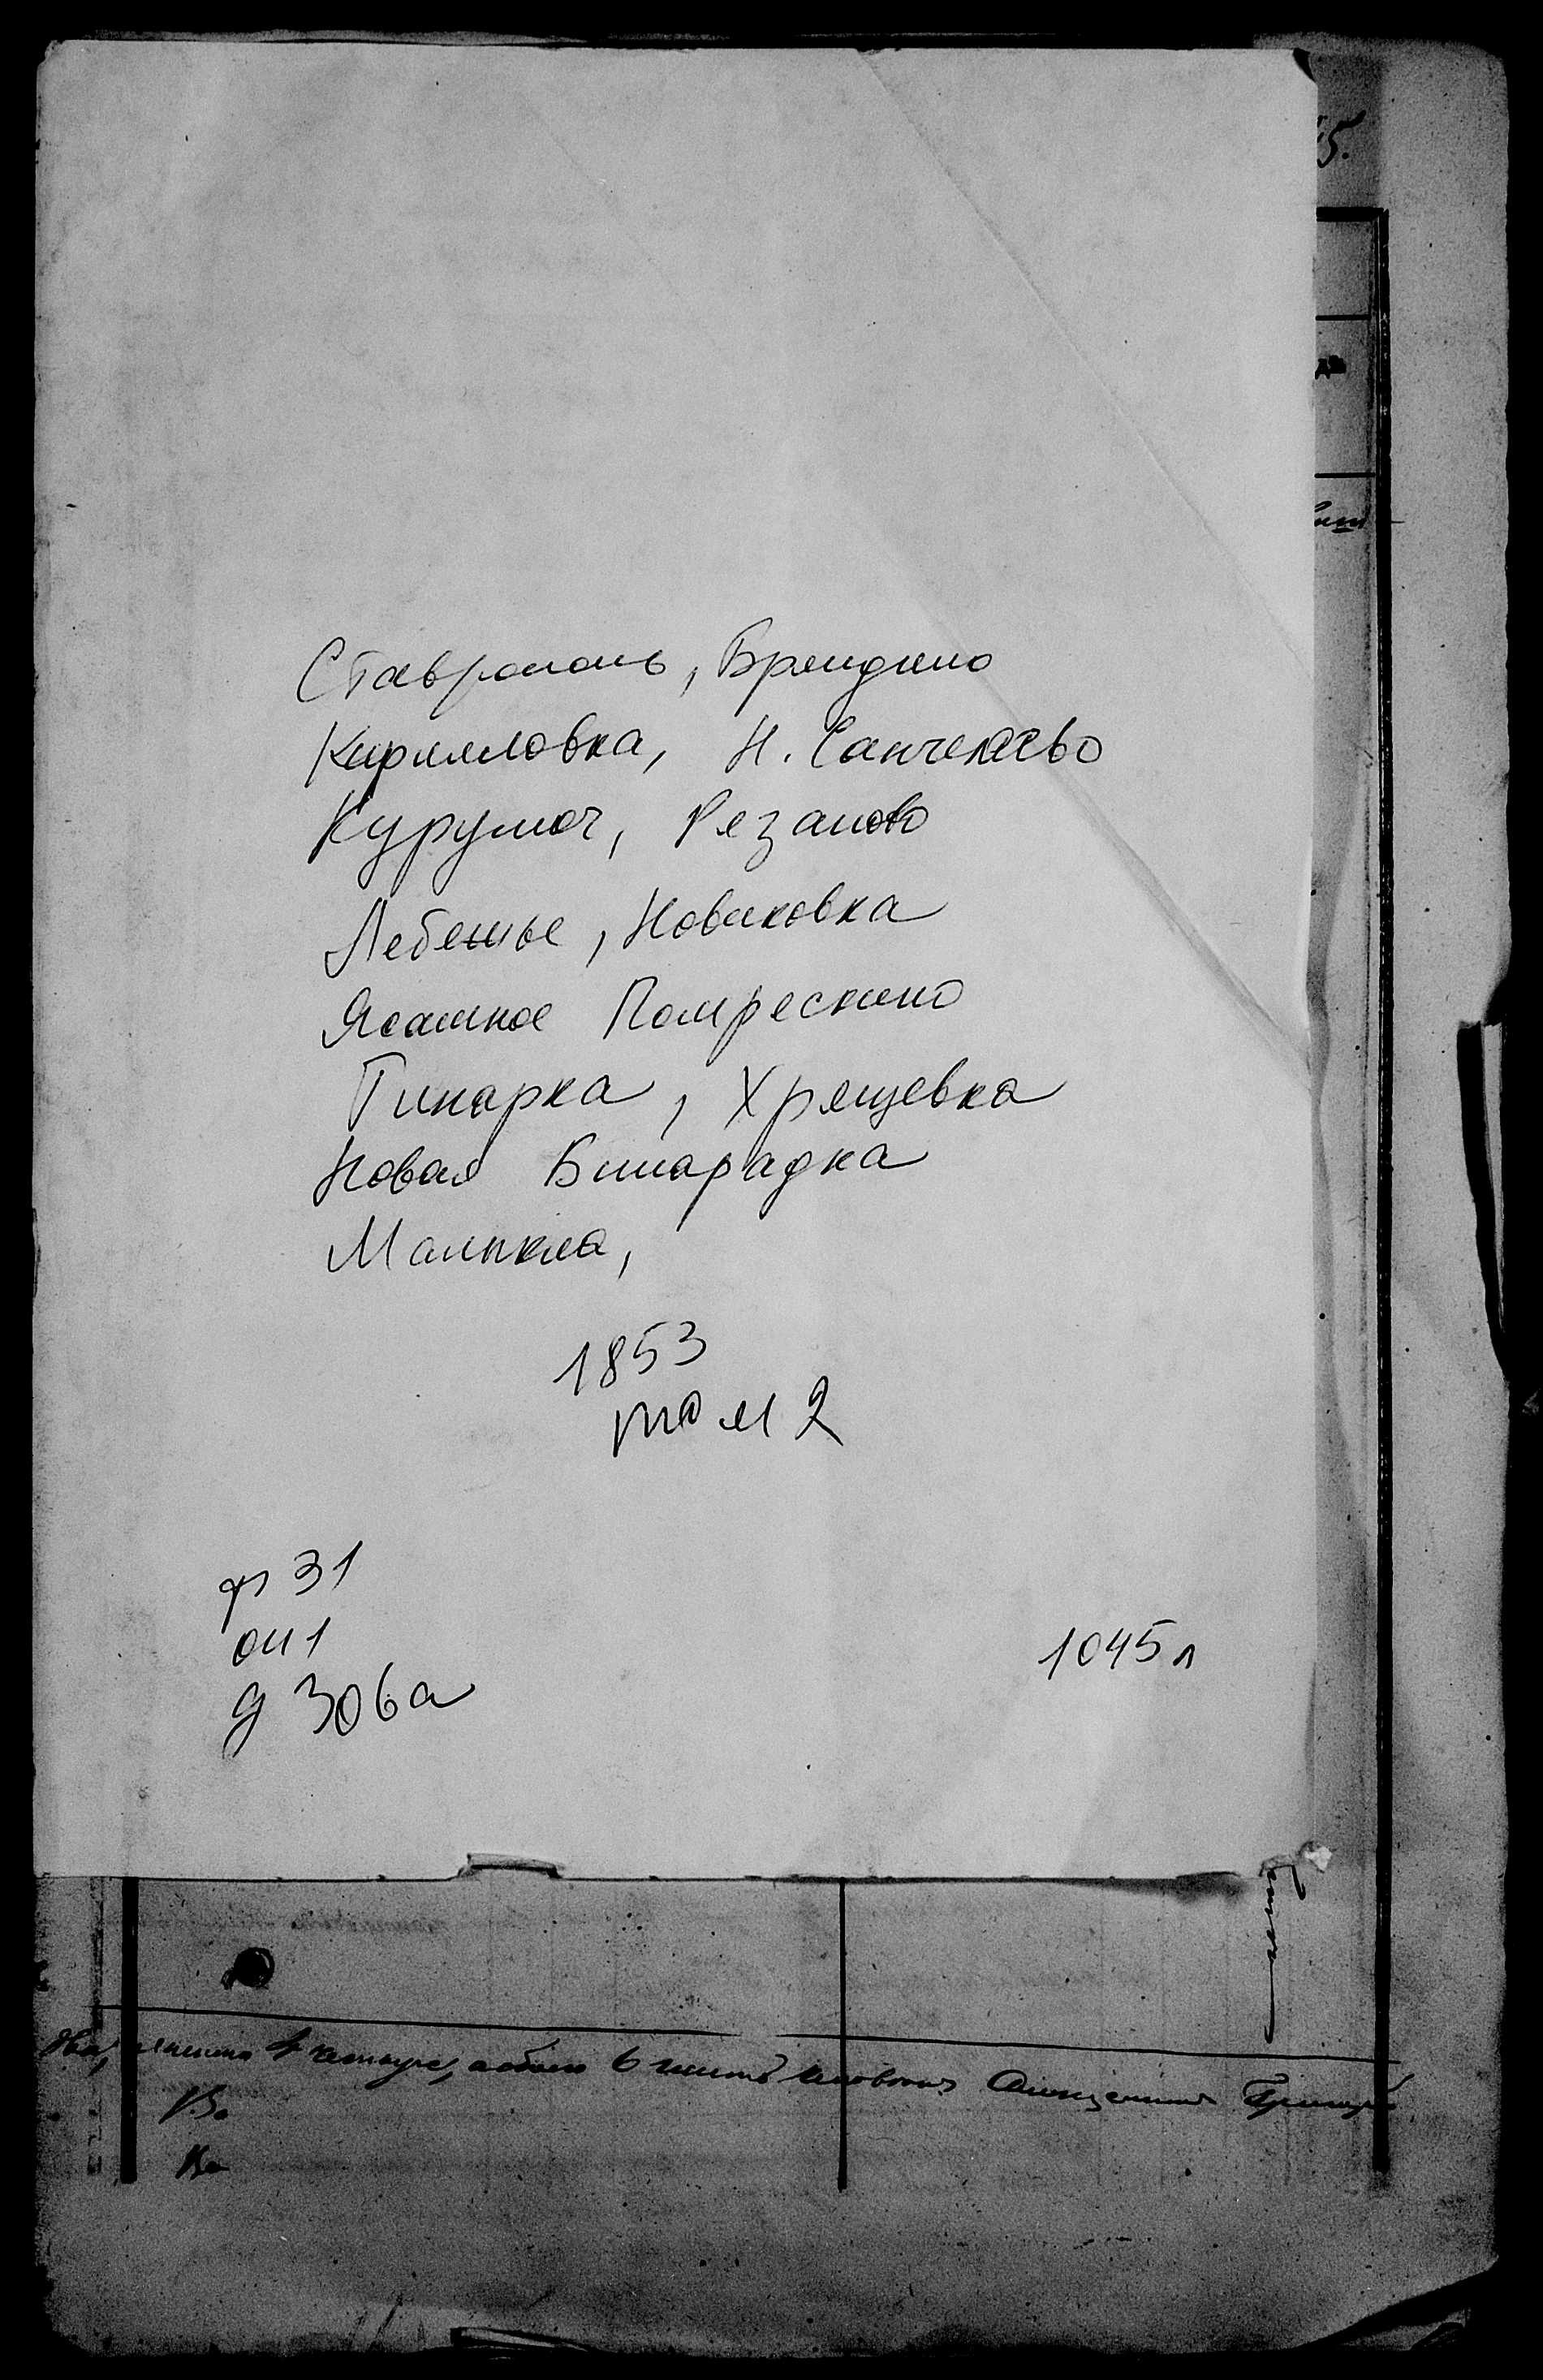 5.
Ставрополь, Брендино
Кирилловка, Н. Санчелеево
Курумоч, Рязаново
Лебежье, Новиковка
Ясашное Помряскино
Тинарка, Хрящевка
Новая Бинарадка
Малыкла,
1853
том 2
ф 31
оп 1
д 306а
1045 л
Во
Во